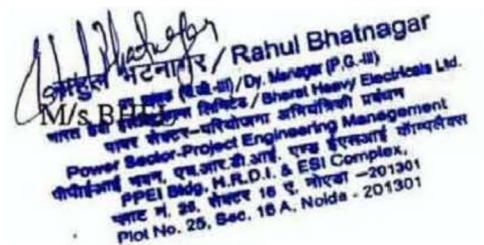 राहुल भटनागर / Rahul Bhatnagar
(P.G.-III) / Dy. Manager (P.G.-III)
M/s BHEL
भारत हेवी इलेक्ट्रिकल्स लिमिटेड / Bharat Heavy Electricals Ltd.
पावर सेक्टर-परियोजना अभियांत्रिकी प्रबंधन
Power Sector-Project Engineering Management
पीपीईआई भवन, एच.आर.डी.आई. एण्ड ईएसआई कॉम्पलैक्स
PPEI Bldg, H.R.D.I. & ESI Complex,
प्लाट नं. 25, सेक्टर 16 ए, नोएडा -201301
Plot No. 25, Sec. 16 A, Noida - 201301